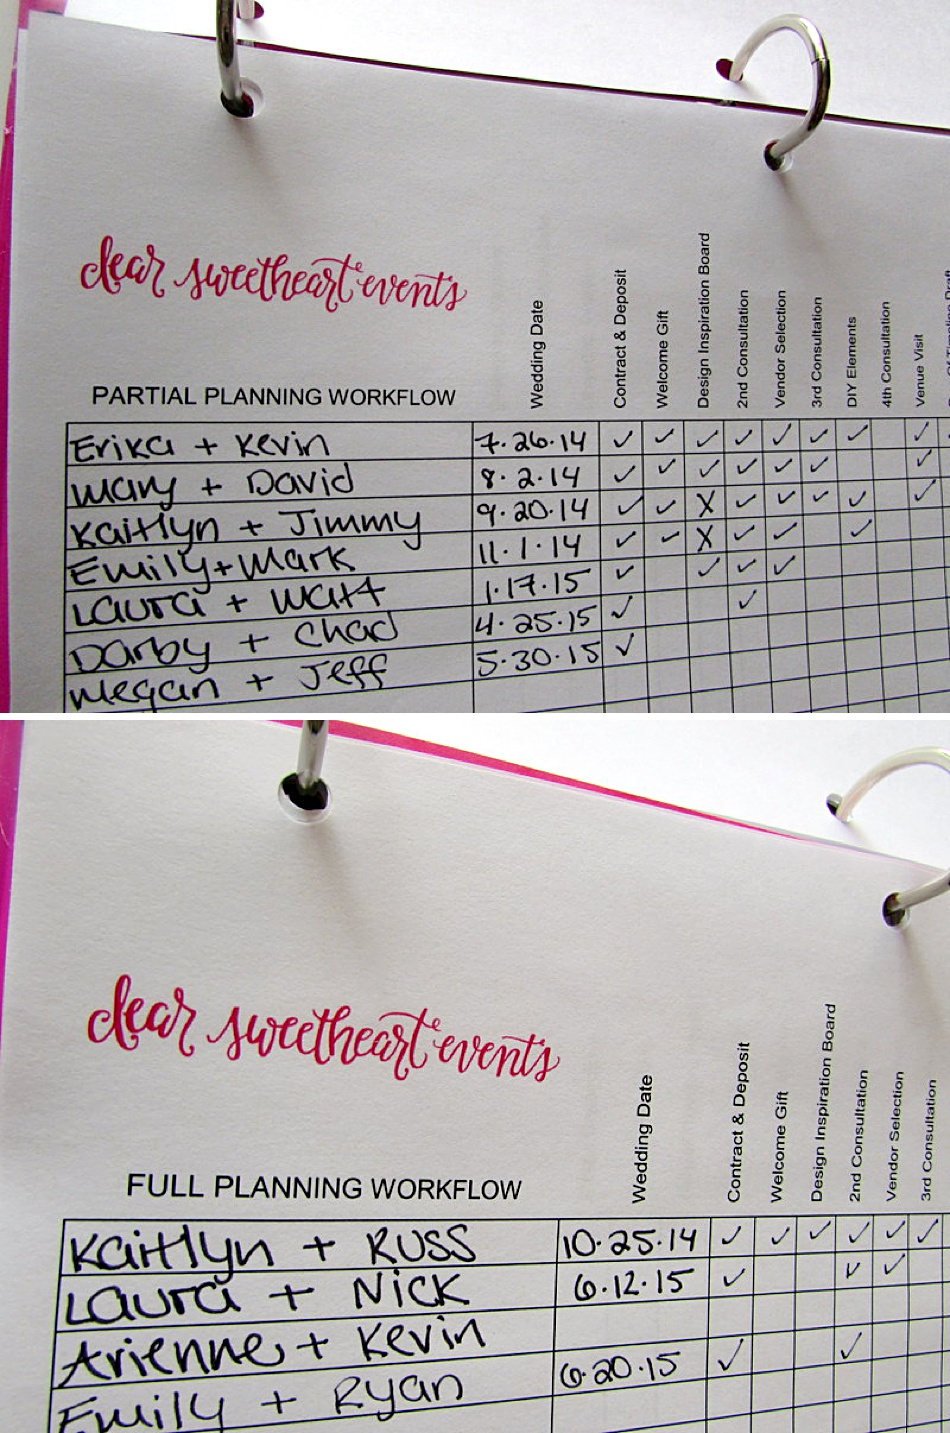 dear sweetheart events
PARTIAL PLANNING WORKFLOW
Wedding Date
Contract & Deposit
Welcome Gift
Design Inspiration Board
2nd Consultation
Vendor Selection
3rd Consultation
DIY Elements
4th Consultation
Venue Visit
Erika + Kevin 7.26.14 ✓ ✓ ✓ ✓ ✓ ✓ ✓ ✓
Mary + David 8.2.14 ✓ ✓ ✓ ✓ ✓ ✓ ✓
Kaitlyn + Jimmy 9.20.14 ✓ ✓ X ✓ ✓ ✓ ✓ ✓
Emily + Mark 11.1.14 ✓ ✓ X ✓ ✓ ✓
Laura + Matt 1.17.15 ✓ ✓ ✓ ✓
Darby + Chad 4.25.15 ✓ ✓
Megan + Jeff 5.30.15 ✓
dear sweetheart events
FULL PLANNING WORKFLOW
Wedding Date
Contract & Deposit
Welcome Gift
Design Inspiration Board
2nd Consultation
Vendor Selection
3rd Consultation
Kaitlyn + Russ 10.25.14 ✓ ✓ ✓ ✓ ✓ ✓
Laura + Nick 6.12.15 ✓ ✓ ✓
Arienne + Kevin
Emily + Ryan 6.20.15 ✓ ✓